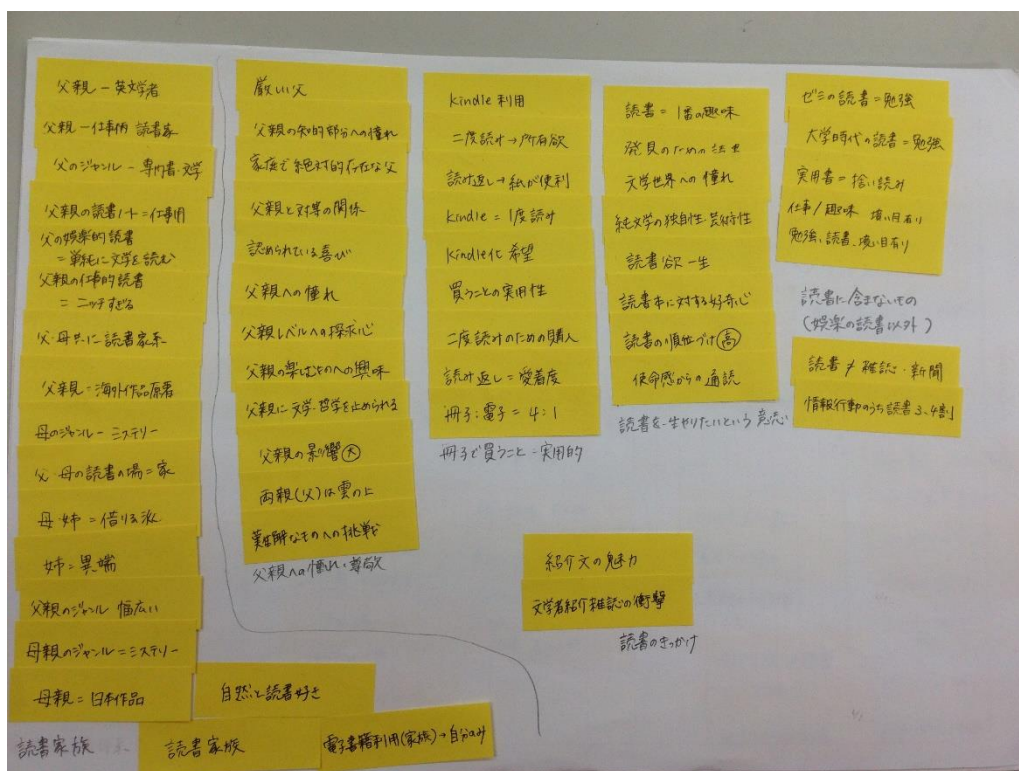 父親ー英文学者
父親ー仕事柄 読書家
父のジャンルー専門書・文学
父親の読書ノート=仕事用
父の娯楽的読書
=単純に文学を読む
父親の仕事的読書
=ニッチすぎる
父・母共に読書家系
父親=海外作品原著
母のジャンルーミステリー
父・母の読書の場=家
母・姉=借りる派
姉=異端
父親のジャンル 幅広い
母親のジャンル=ミステリー
母親=日本作品
読書家族
自然と読書好き
読書家族
電子書籍利用(家族)→自分のみ
厳しい父
父親の知的部分への憧れ
家庭で絶対的存在な父
父親と対等の関係
認められている喜び
父親への憧れ
父親レベルへの探求心
父親の楽しむものへの興味
父親に文学・哲学を止められる
父親の影響大
両親(父)は雲の上
難解なものへの挑戦
父親への憧れ・尊敬
Kindle利用
二度読み→所有欲
読み返し→紙が便利
Kindle=1度読み
Kindle化希望
買うことの実用性
二度読みのための購入
読み返し=愛着度
冊子:電子=4:1
冊子で買うこと=実用的
読書=1番の趣味
発見のための
文学世界への憧れ
純文学の独自性・芸術性
読書欲一生
読書本に対する好奇心
読書の順位づけ高
使命感からの通読
読書を一生やりたいという意志
紹介文の魅力
文学者紹介雑誌の衝撃
読書のきっかけ
ゼミの読書=勉強
大学時代の読書=勉強
実用書=拾い読み
仕事/趣味 境い目有り
勉強、読書、境い目有り
読書に含まないもの
(娯楽の読書以外)
読書≠雑誌・新聞
情報行動のうち読書3、4割